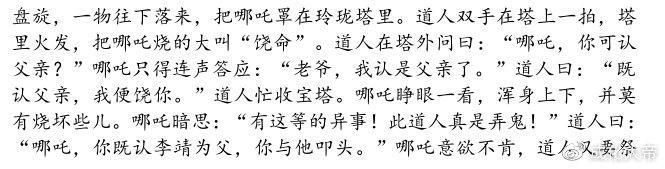 盘旋，一物往下落来，把哪吒罩在玲珑塔里。道人双手在塔上一拍，塔
里火发，把哪吒烧的大叫“饶命”。道人在塔外问曰：“哪吒，你可认
父亲？”哪吒只得连声答应：“老爷，我认是父亲了。”道人曰：“既
认父亲，我便饶你。”道人忙收宝塔。哪吒睁眼一看，浑身上下，并莫
有烧坏些儿。哪吒暗思：“有这等的异事！此道人真是弄鬼！”道人曰：
“哪吒，你既认李靖为父，你与他叩头。”哪吒意欲不肯，道人又要祭